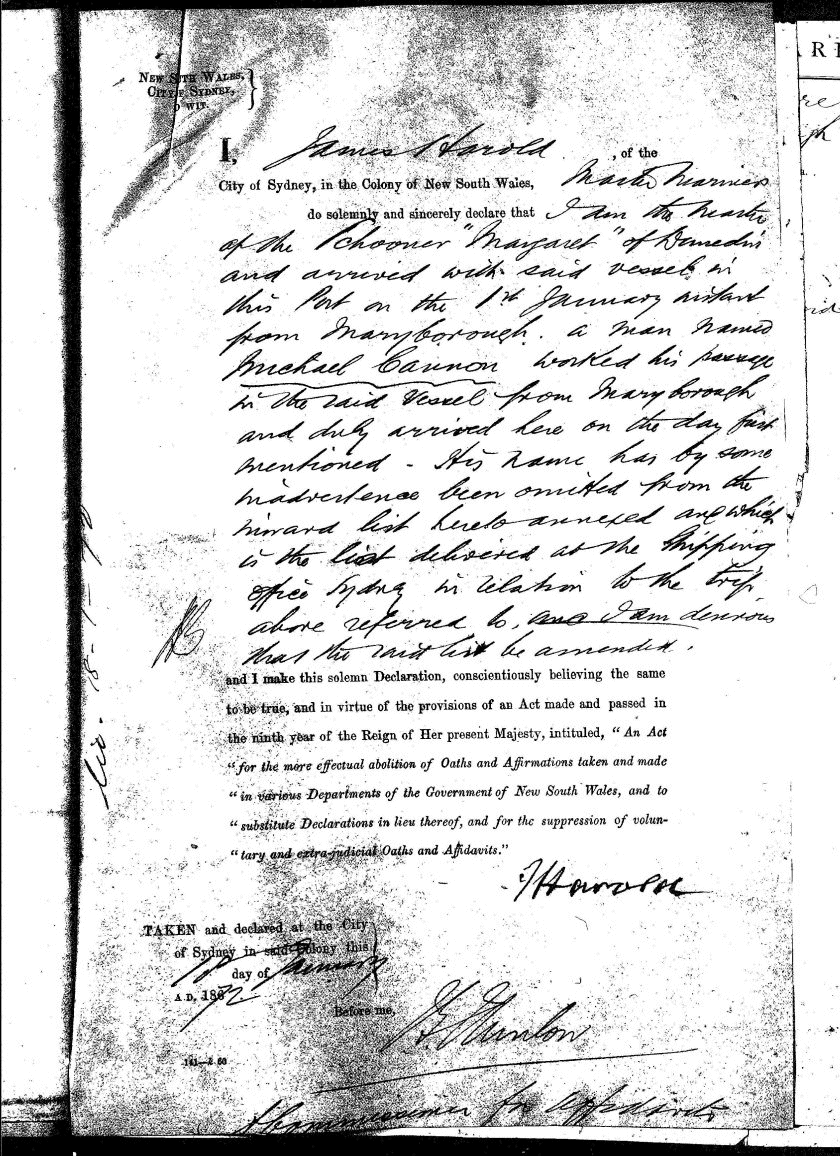 NEW STH WALES,
CITY F SYDNEY,
O WIT.
I, James Harold , of the
City of Sydney, in the Colony of New South Wales, Master Mariner
do solemnly and sincerely declare that I am the Master
of the Schooner "Margaret" of Dunedin
and arrived with said vessel in
this Port on the 1st January instant
from Maryborough. a man named
Michael Cannon worked his passage
in the said vessel from Maryborough
and duly arrived here on the day first
mentioned - His name has by some
inadvertence been omitted from the
inward list hereto annexed and which
is the list delivered at the Shipping
office Sydney in relation to the trip
above referred to, and I am desirous
that the said list be amended.
and I make this solemn Declaration, conscientiously believing the same
to be true, and in virtue of the provisions of an Act made and passed in
the ninth year of the Reign of Her present Majesty, intituled, " An Act
" for the more effectual abolition of Oaths and Affirmations taken and made
" in various Departments of the Government of New South Wales, and to
" substitute Declarations in lieu thereof, and for the suppression of volun-
" tary and extra-judicial Oaths and Affidavits."
J Harold
TAKEN and declared at the City
of Sydney in said Colony this
day of January
A.D. 1872
Before me,
A Commissioner for Affidavits